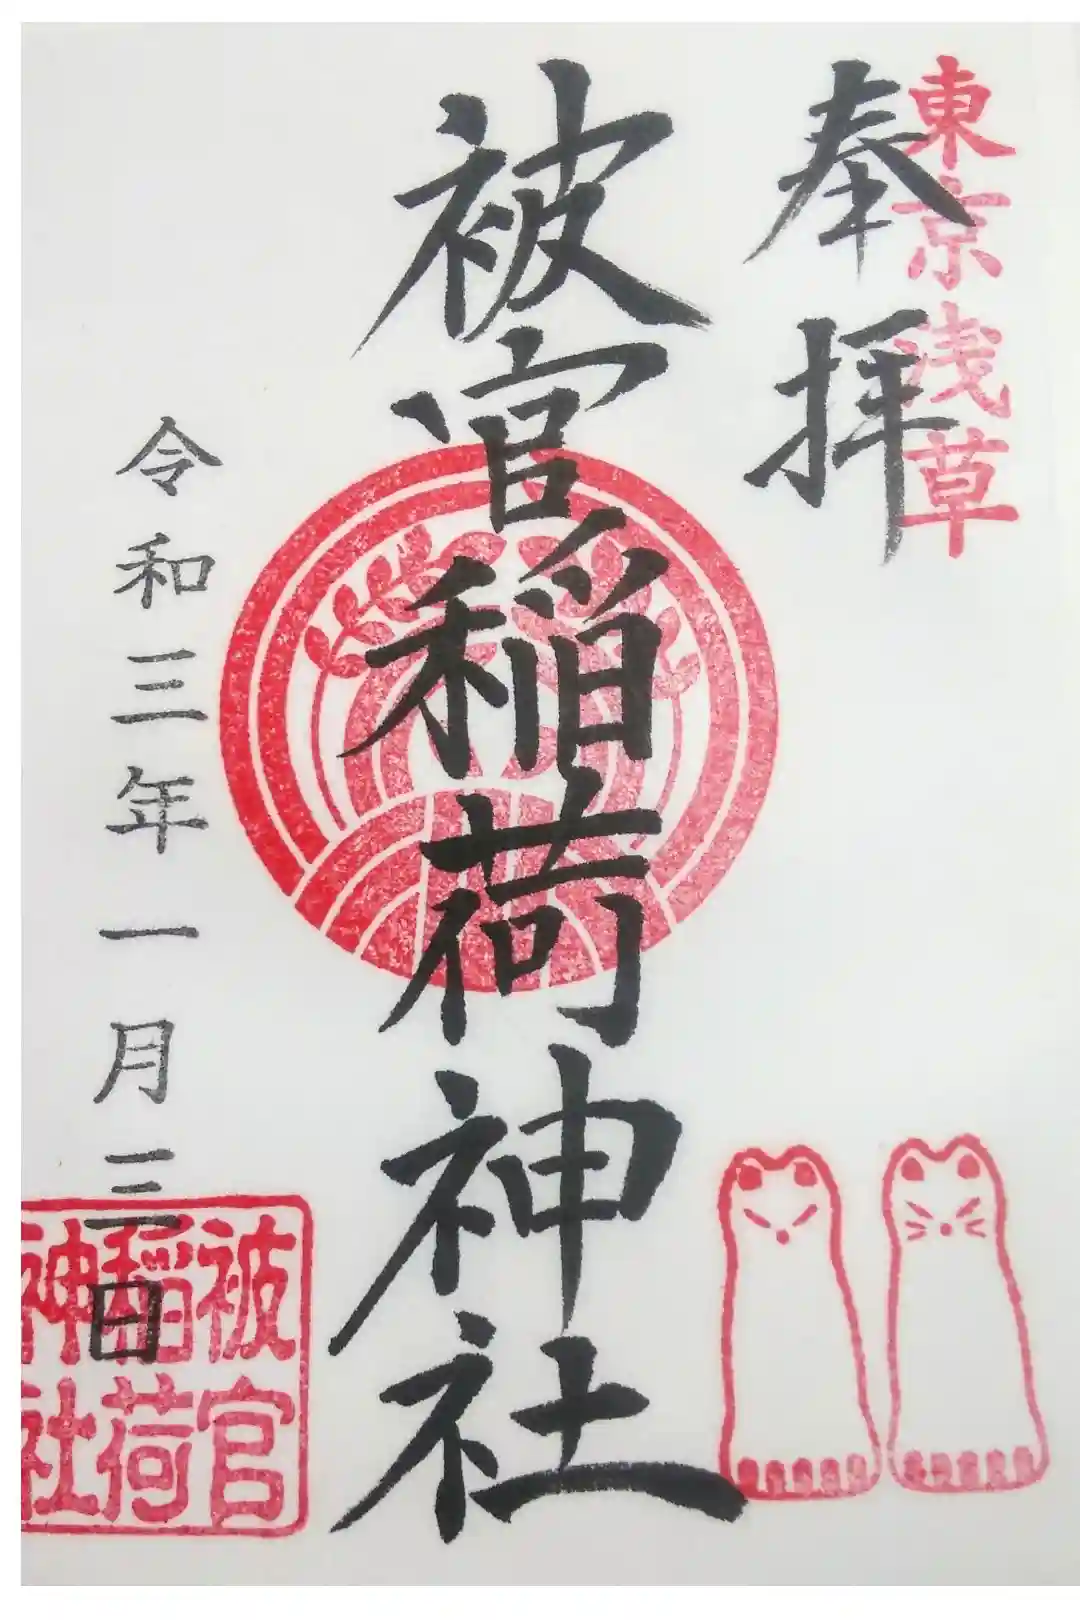 東京浅草
奉拝
被官稲荷神社
令和三年一月三日
被官
稲荷
神社